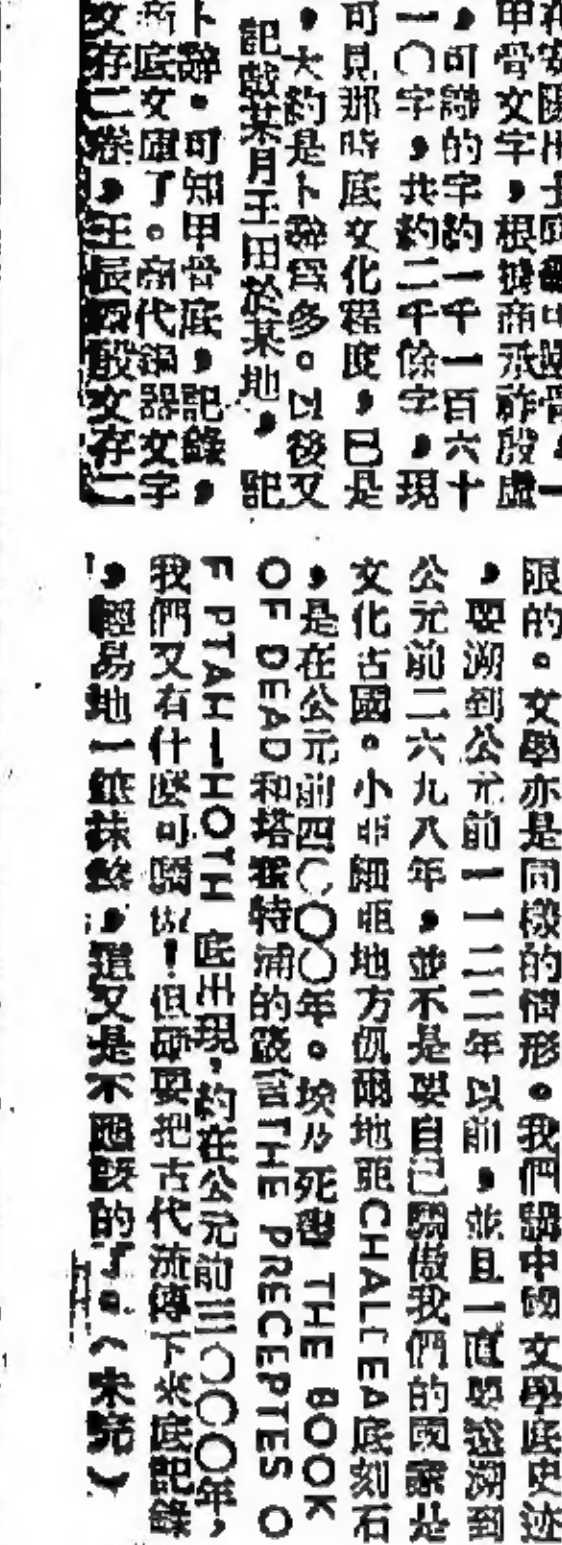 在安陽出土底龜甲獸骨，一
甲骨文字，根據商承祚殷虛
，可識的字約一千一百六十
一〇字，共約二千餘字，現
可見那時底文化程度，已是
，大約是卜辭爲多。以後又
記戩某月王田於某地，記
卜辭。可知甲骨底，記錄，
商底文庫了。商代銅器文字
文存二卷，王辰殷文存二
限的。文學亦是同樣的情形。我們講中國文學底史迹
，要溯到公元前一一二二年以前，並且一直要追溯到
公元前二六九八年，並不是要自己驕傲我們的國家是
文化古國。小亞細亞地方伽爾地亞CHALCEA底刻石
，是在公元前四〇〇〇年。埃及死書 THE BOOK
OF DEAD和塔霍特浦的箴言THE PRECEPTES O
F PTAH-HOTH 底出現，約在公元前三〇〇〇年，
我們又有什麼可驕傲！但硬要把古代流傳下來底記錄
，輕易地一筆抹煞，這又是不應該的了。（未完）